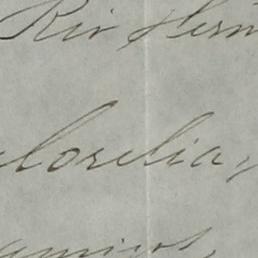 Rio Hern
alorelia,
amigos,